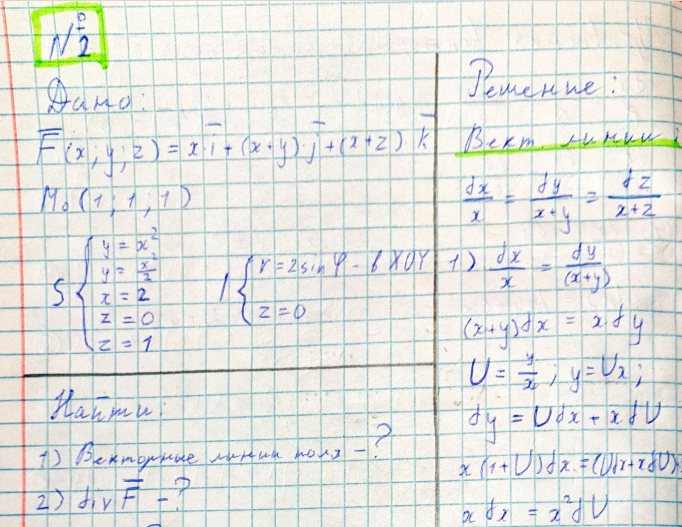 №2
Дано:
F̅(x; y; z) = x·i̅ + (x+y)·j̅ + (x+z)·k̅
M₀(1; 1; 1)
S { y = x²
y = x²/2
x = 2
z = 0
z = 1
l { r = 2sinφ - в XOY
z = 0
Найти:
1) Векторные линии поля - ?
2) div F̅ - ?
Решение:
Вект. линии
dx/x = dy/(x+y) = dz/(x+z)
1) dx/x = dy/(x+y)
(x+y)dx = xdy
U = y/x ; y = Ux;
dy = Udx + xdU
x(1+U)dx = (Udx+xdU)
xdx = x²dU